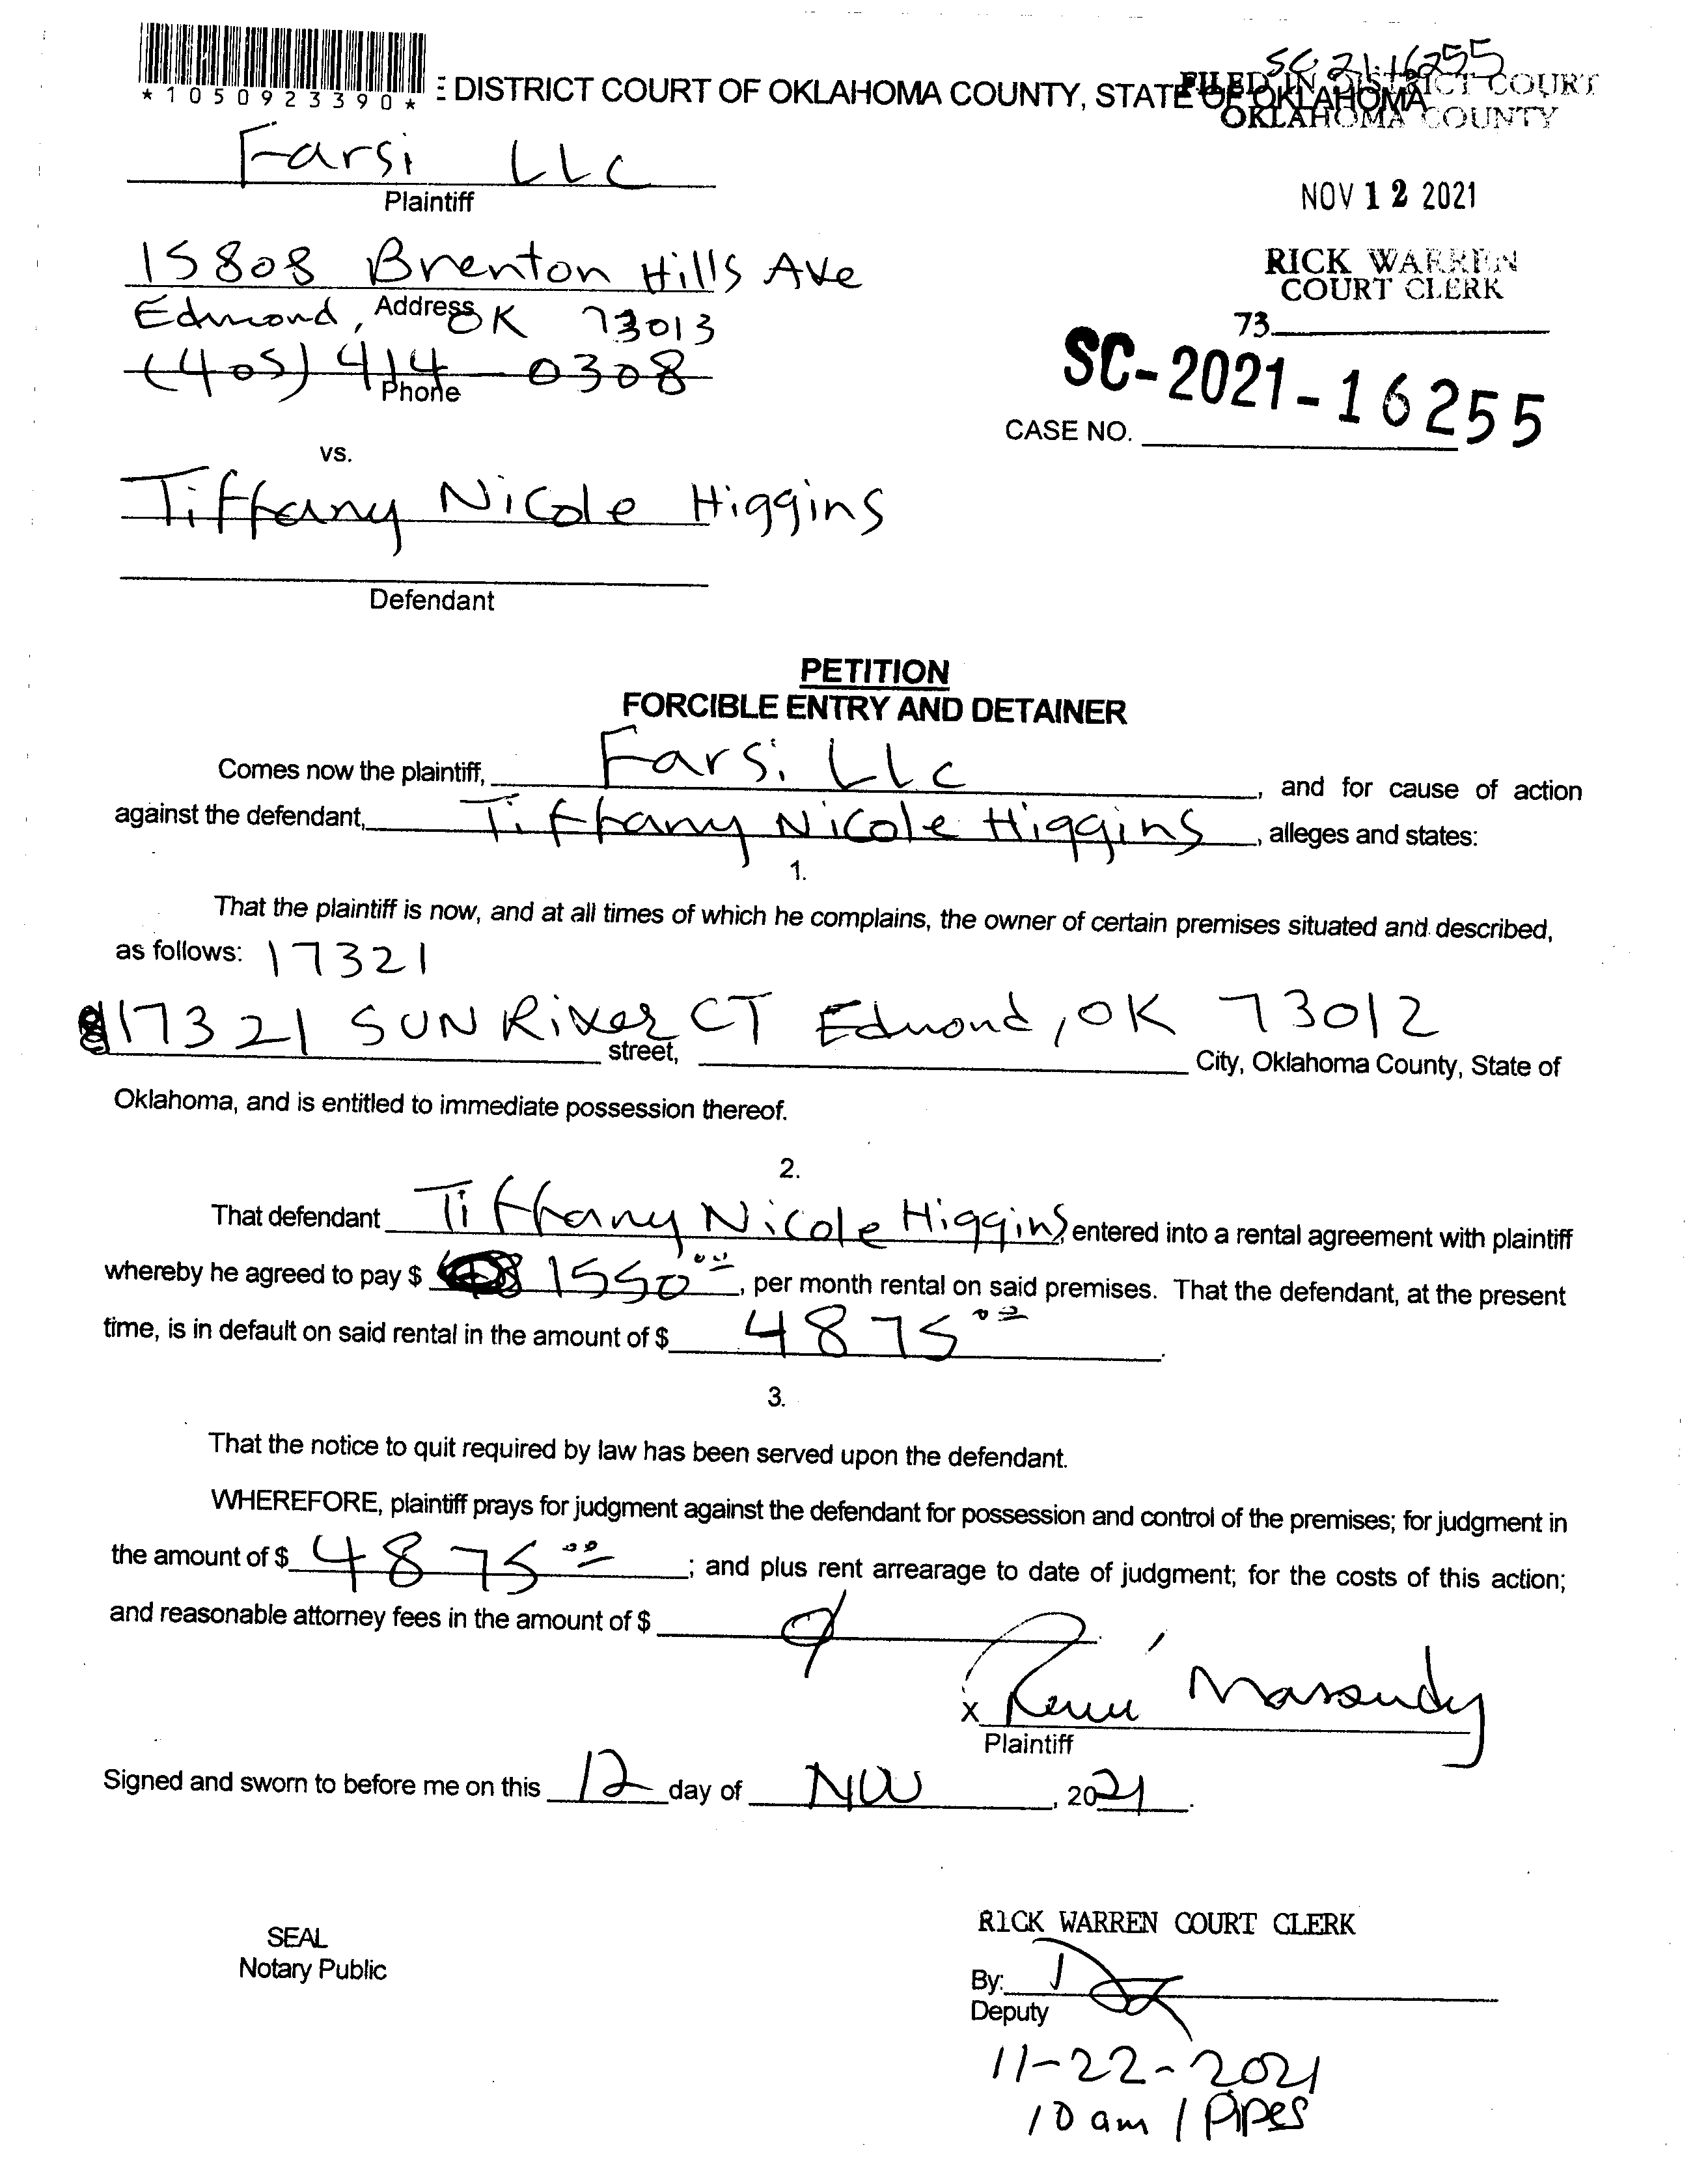 SC 21-16255
*1050923390*
E DISTRICT COURT OF OKLAHOMA COUNTY, STATE OF OKLAHOMA
FILED IN DISTRICT COURT
OKLAHOMA COUNTY
Farsi LLC
Plaintiff
NOV 12 2021
15808 Brenton Hills Ave
Address
RICK WARREN
COURT CLERK
Edmond, OK 73013
73
(405) 414-0308
Phone
SC-2021-16255
CASE NO.
vs.
Tiffany Nicole Higgins
Defendant
PETITION
FORCIBLE ENTRY AND DETAINER
Comes now the plaintiff, Farsi LLC, and for cause of action
against the defendant, Tiffany Nicole Higgins, alleges and states:
1.
That the plaintiff is now, and at all times of which he complains, the owner of certain premises situated and described,
as follows: 17321
17321 SUN River CT Edmond, OK 73012
street, City, Oklahoma County, State of
Oklahoma, and is entitled to immediate possession thereof.
2.
That defendant Tiffany Nicole Higgins, entered into a rental agreement with plaintiff
whereby he agreed to pay $ 1550 00, per month rental on said premises. That the defendant, at the present
time, is in default on said rental in the amount of $ 4875 00.
3.
That the notice to quit required by law has been served upon the defendant.
WHEREFORE, plaintiff prays for judgment against the defendant for possession and control of the premises; for judgment in
the amount of $ 4875 00; and plus rent arrearage to date of judgment; for the costs of this action;
and reasonable attorney fees in the amount of $ 0.
x Masoudy
Plaintiff
Signed and sworn to before me on this 12 day of Nov, 2021.
RICK WARREN COURT CLERK
SEAL
Notary Public
By:
Deputy
11-22-2021
10 am / Pipes